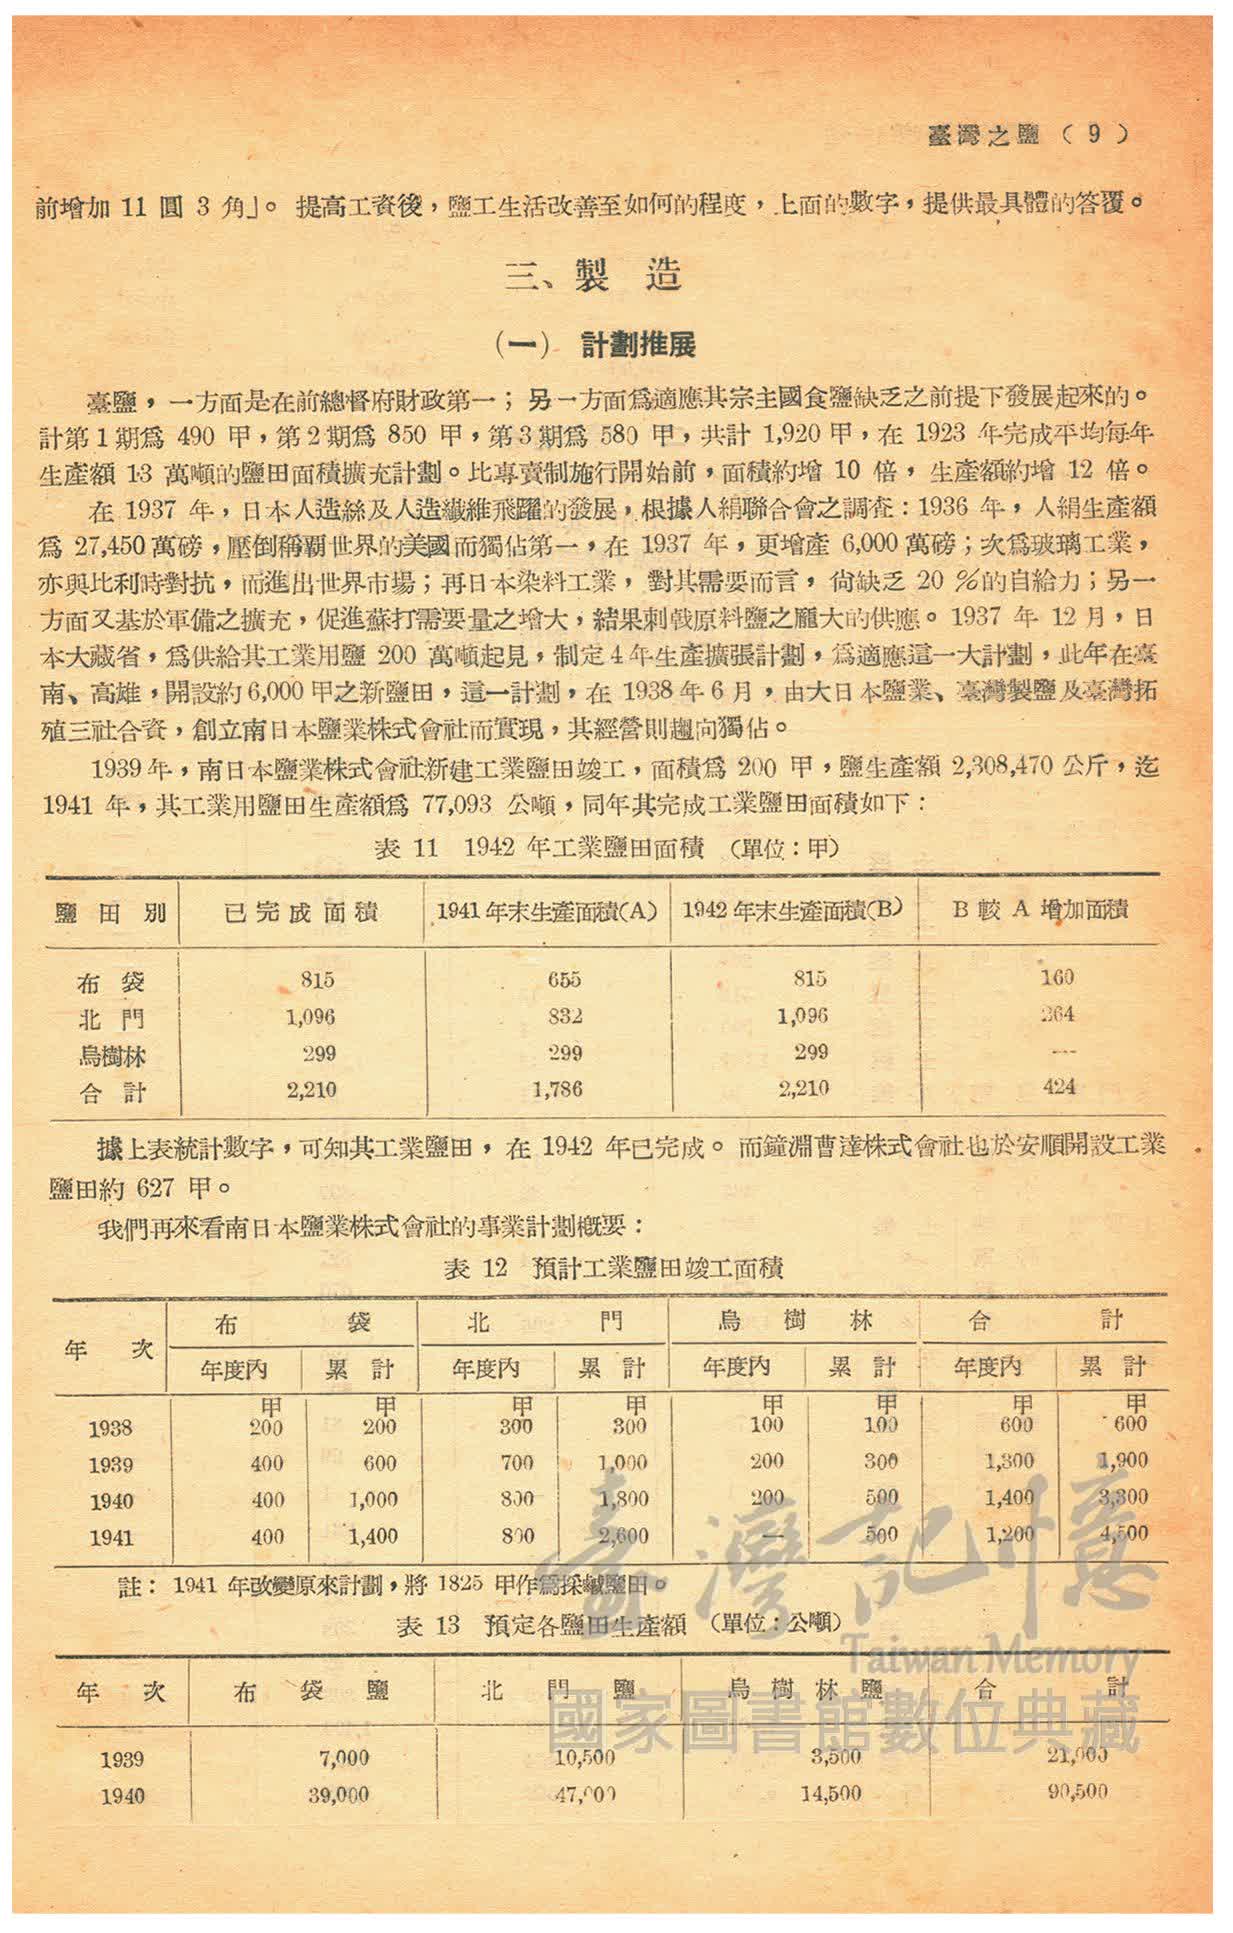 臺灣之鹽（9）
前增加 11 圓 3 角」。提高工資後，鹽工生活改善至如何的程度，上面的數字，提供最具體的答覆。
三、製　造
（一）　計劃推展
臺鹽，一方面是在前總督府財政第一；另一方面爲適應其宗主國食鹽缺乏之前提下發展起來的。
計第1期爲 490 甲，第2期爲 850 甲，第3期爲 580 甲，共計 1,920 甲，在 1923 年完成平均每年
生產額 13 萬噸的鹽田面積擴充計劃。比專賣制施行開始前，面積約增 10 倍，生產額約增 12 倍。
在 1937 年，日本人造絲及人造纖維飛躍的發展，根據人絹聯合會之調查：1936 年，人絹生產額
爲 27,450 萬磅，壓倒稱霸世界的美國而獨佔第一，在 1937 年，更增產 6,000 萬磅；次爲玻璃工業，
亦與比利時對抗，而進出世界市場；再日本染料工業，對其需要而言，尙缺乏 20 %的自給力；另一
方面又基於軍備之擴充，促進蘇打需要量之增大，結果刺戟原料鹽之龐大的供應。1937 年 12 月，日
本大藏省，爲供給其工業用鹽 200 萬噸起見，制定4年生產擴張計劃，爲適應這一大計劃，此年在臺
南、高雄，開設約 6,000 甲之新鹽田，這一計劃，在 1938 年 6 月，由大日本鹽業、臺灣製鹽及臺灣拓
殖三社合資，創立南日本鹽業株式會社而實現，其經營則趨向獨佔。
1939 年，南日本鹽業株式會社新建工業鹽田竣工，面積爲 200 甲，鹽生產額 2,308,470 公斤，迄
1941 年，其工業用鹽田生產額爲 77,093 公噸，同年其完成工業鹽田面積如下：
表 11　1942 年工業鹽田面積　（單位：甲）
鹽　田　別　已完成面積　1941年末生產面積(A)　1942年末生產面積(B)　B 較 A 增加面積
布　袋　815　655　815　160
北　門　1,096　832　1,096　264
烏樹林　299　299　299　—
合　計　2,210　1,786　2,210　424
據上表統計數字，可知其工業鹽田，在 1942 年已完成。而鐘淵曹達株式會社也於安順開設工業
鹽田約 627 甲。
我們再來看南日本鹽業株式會社的事業計劃概要：
表 12　預計工業鹽田竣工面積
年　次　布　袋　北　門　烏　樹　林　合　計
年度內　累　計　年度內　累　計　年度內　累　計　年度內　累　計
甲　甲　甲　甲　甲　甲　甲　甲
1938　200　200　300　300　100　100　600　600
1939　400　600　700　1,000　200　300　1,300　1,900
1940　400　1,000　800　1,800　200　500　1,400　3,300
1941　400　1,400　800　2,600　—　500　1,200　4,500
註：1941 年改變原來計劃，將 1825 甲作爲採鹹鹽田。
表 13　預定各鹽田生產額　（單位：公噸）
年　次　布　袋　鹽　北　門　鹽　烏　樹　林　鹽　合　計
1939　7,000　10,500　3,500　21,000
1940　39,000　47,000　14,500　90,500
臺灣記憶
Taiwan Memory
國家圖書館數位典藏